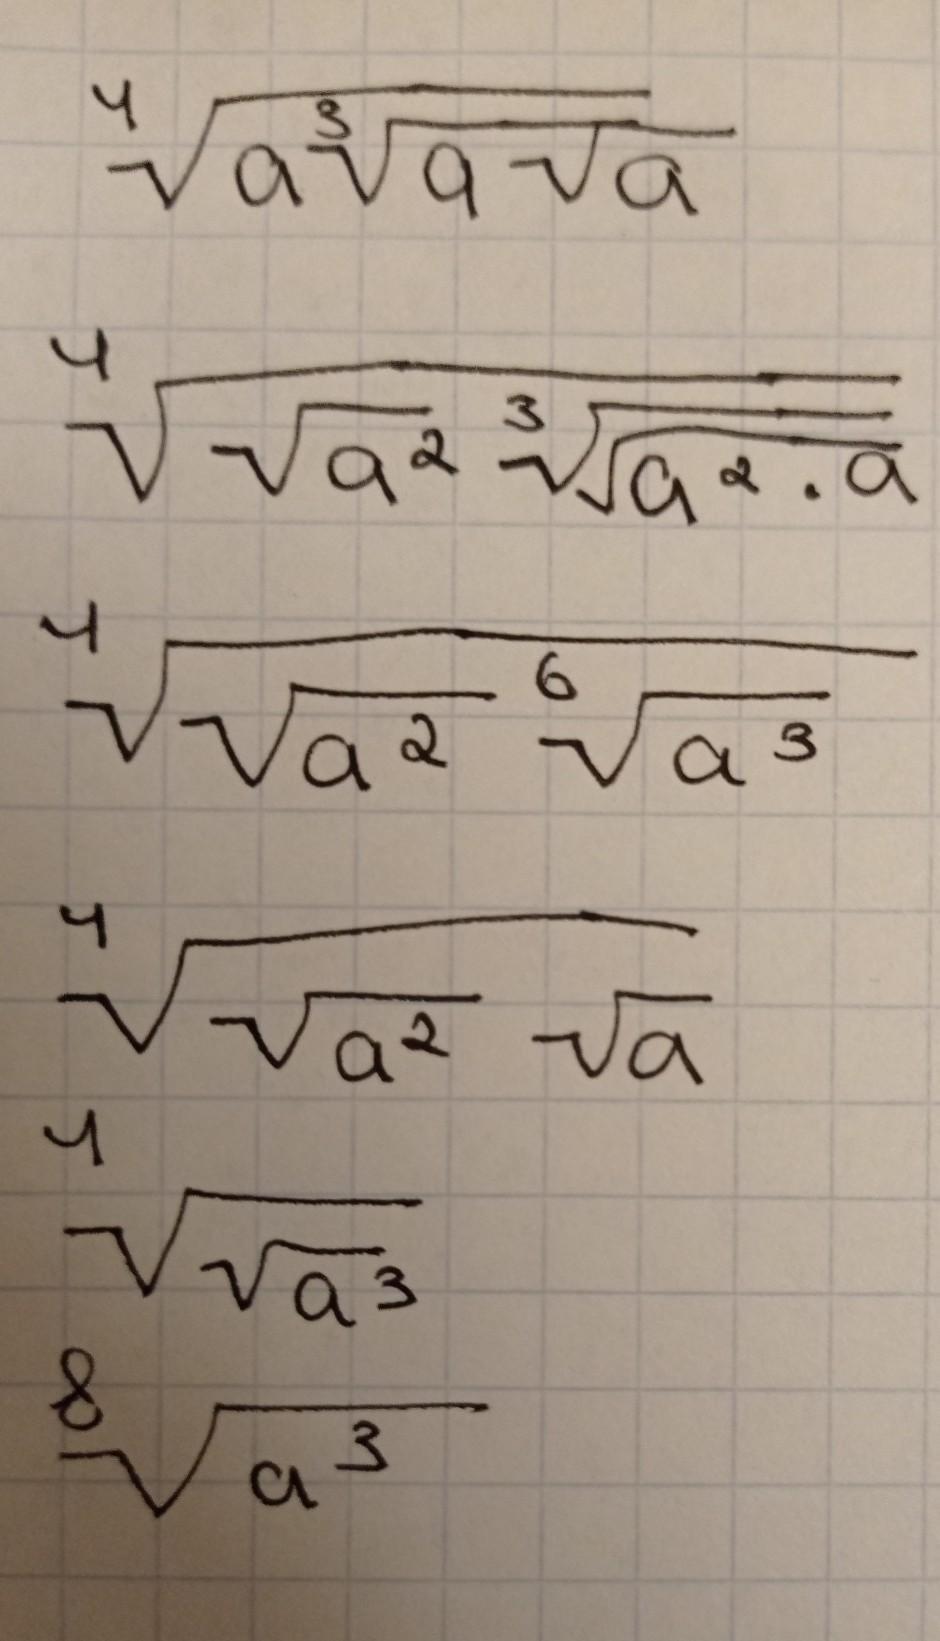 ⁴√(a ³√(a √a))
⁴√(√a² ³√(√(a² · a)))
⁴√(√a² ⁶√a³)
⁴√(√a² √a)
⁴√(√a³)
⁸√a³